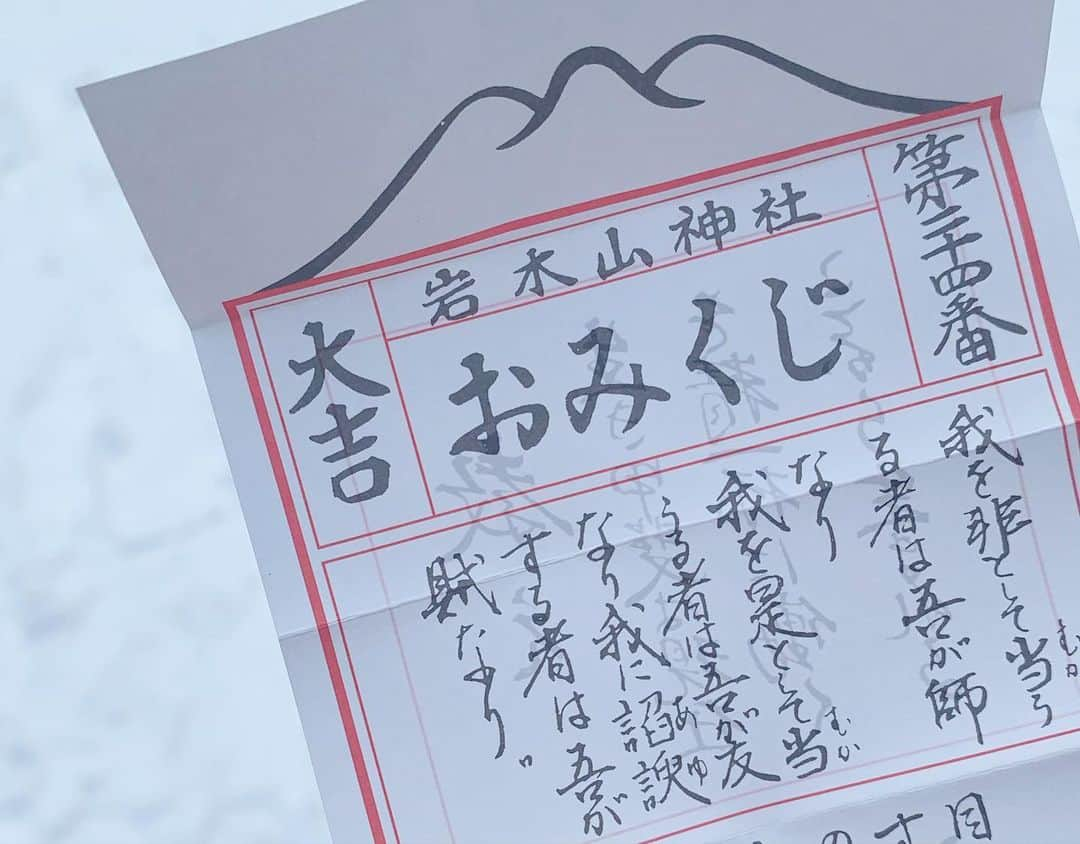 第二十四番
岩木山神社
おみくじ
大吉
我を非として当う
むか
る者は吾が師
なり
我を是として当
むか
うる者は吾が友
なり我に諂諛
あゆ
する者は吾が
賊なり。